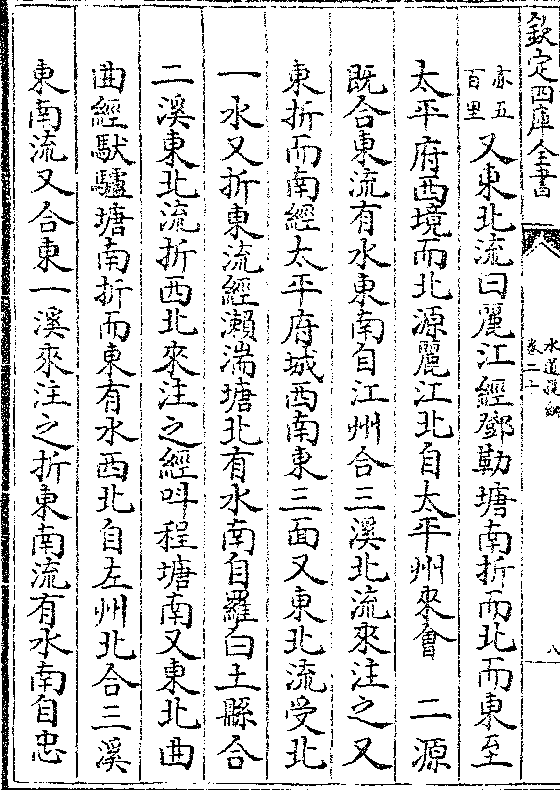 欽定四庫全書
水道提綱
卷二十
八
亦五百里又東北流曰麗江經鄧勒塘南折而北而東至
太平府西境而北源麗江北自太平州來會　二源
既合東流有水東南自江州合三溪北流來注之又
東折而南經太平府城西南東三面又東北流受北
一水又折東流經瀨湍塘北有水南自羅白土縣合
二溪東北流折西北來注之經叫程塘南又東北曲
曲經馱驢塘南折而東有水西北自左州北合三溪
東南流又合東一溪來注之折東南流有水南自忠